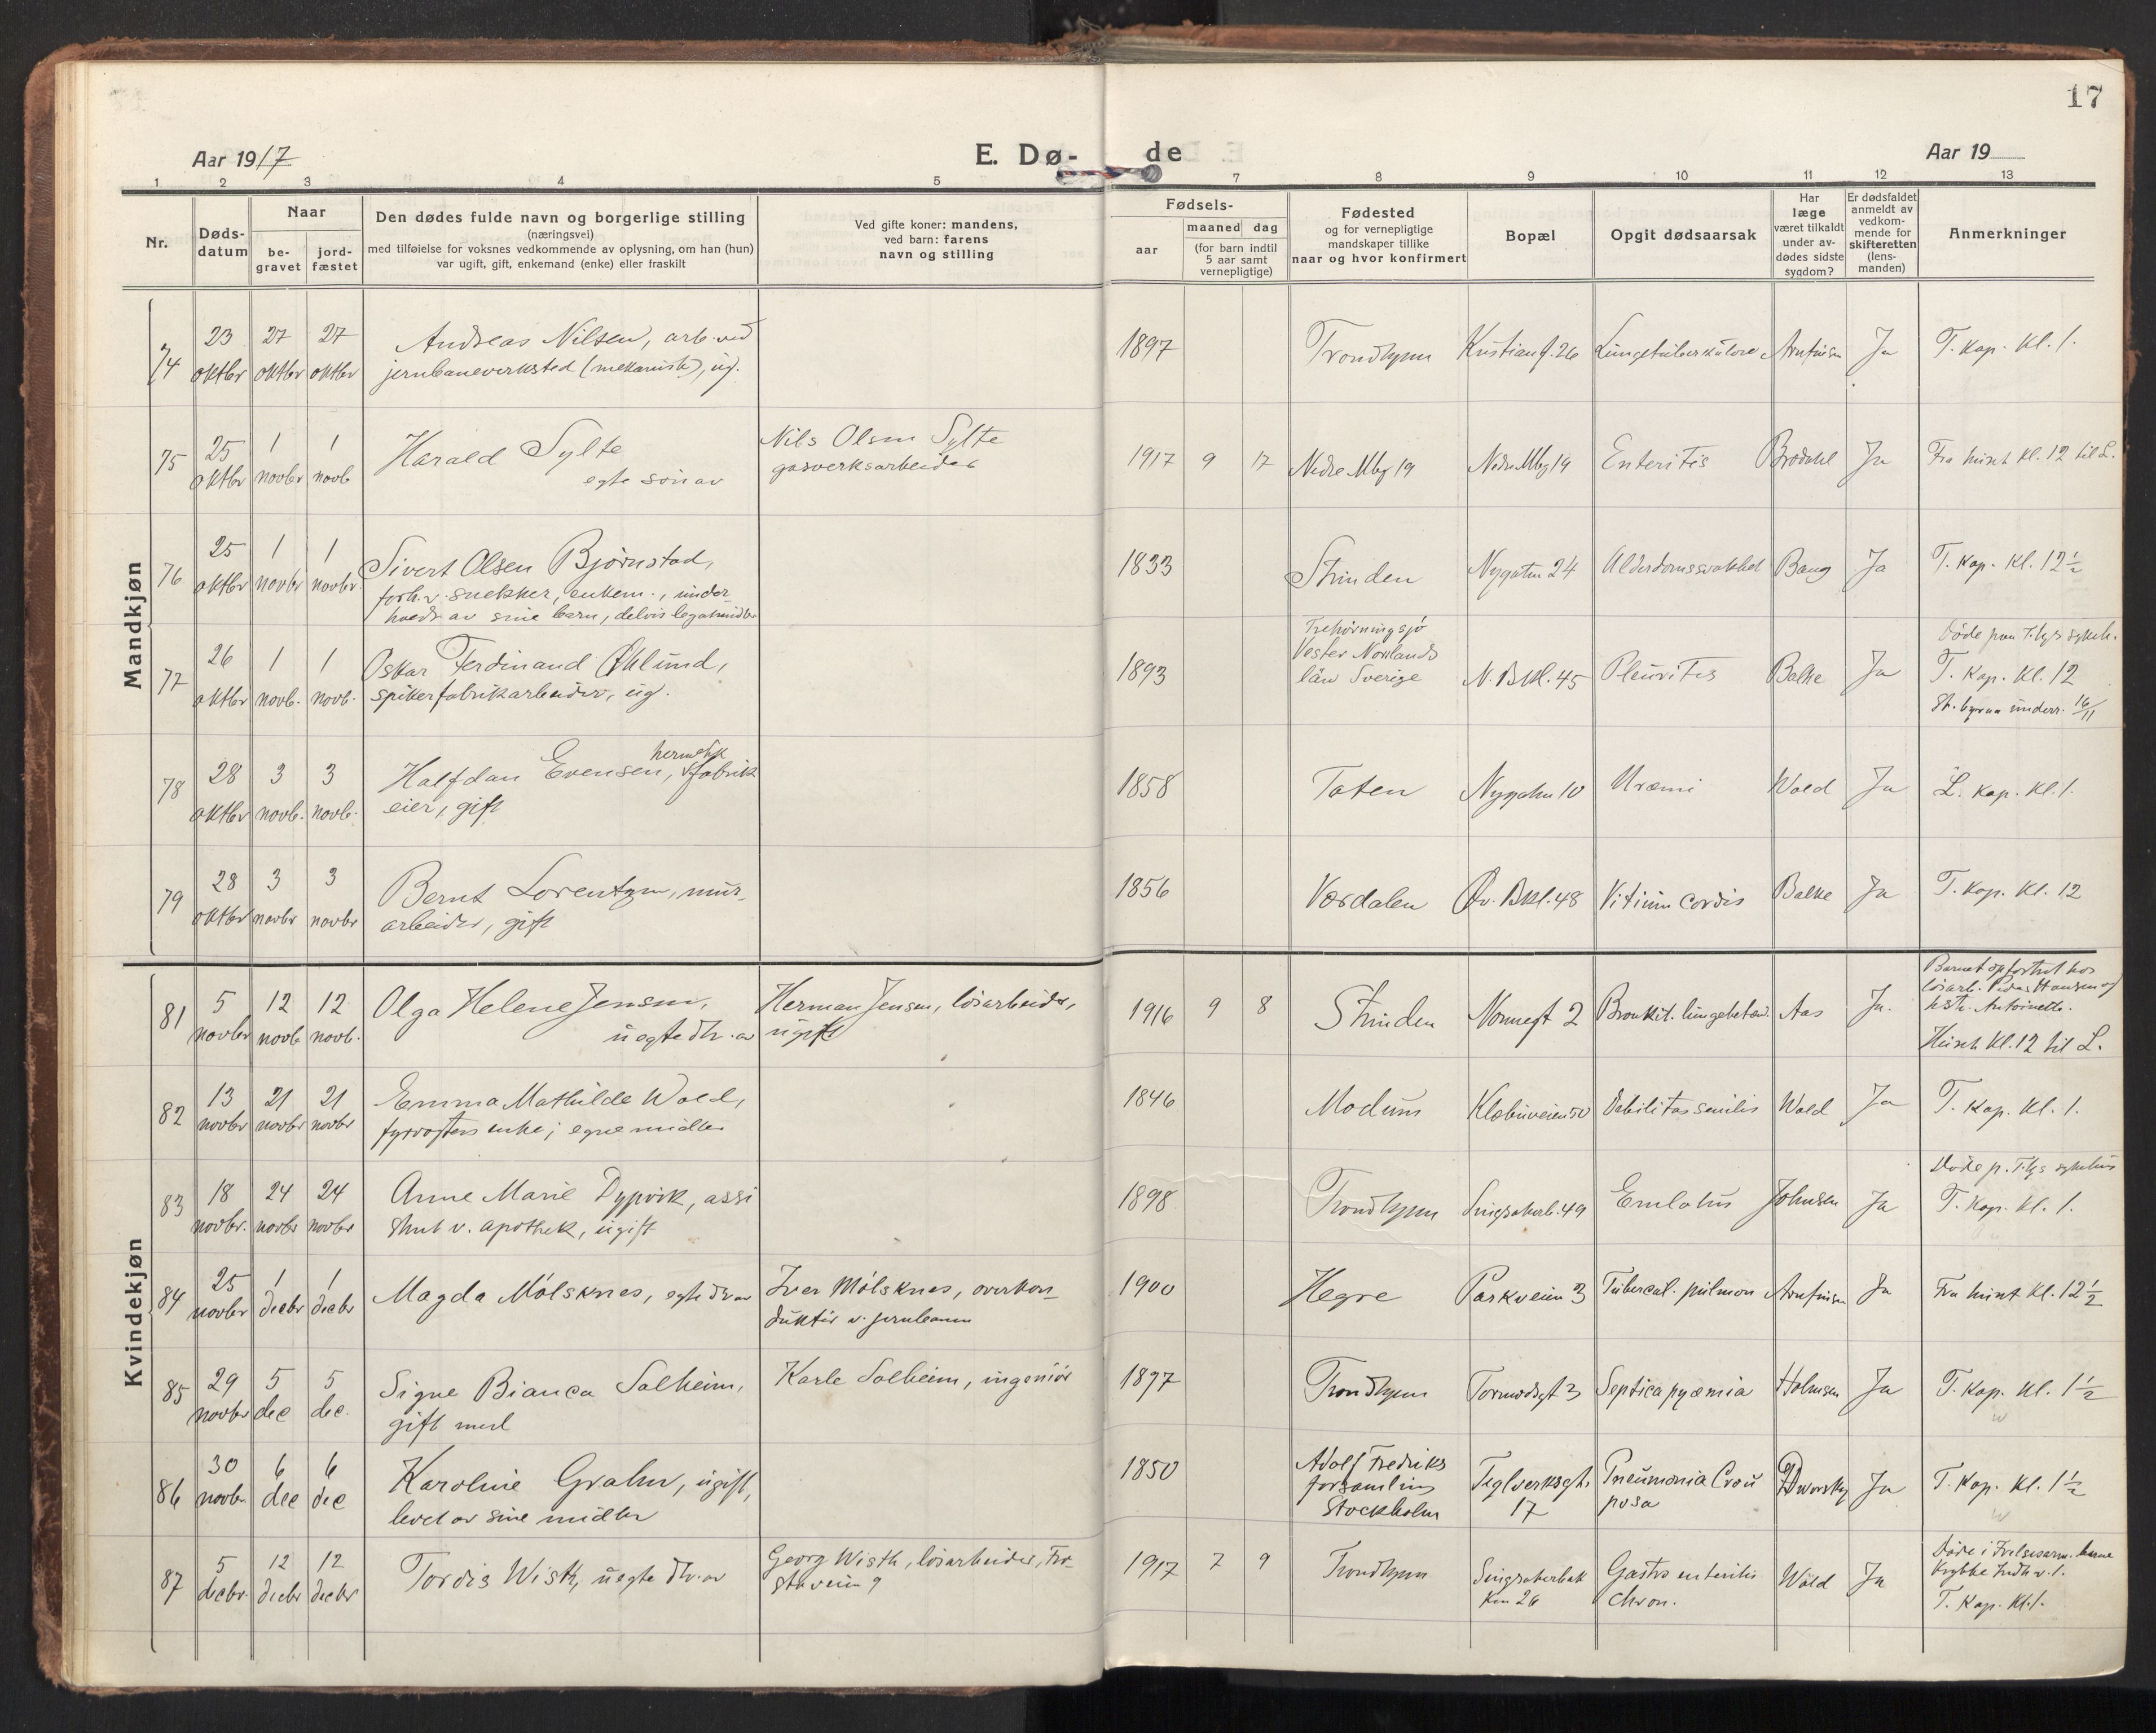 17
Aar 1917
E. Dø-
de
Aar 19
1 2 3 4 5 7 8 9 10 11 12 13
Nr.
Døds-
datum
Naar
be-
gravet
jord-
fæstet
Den dødes fulde navn og borgerlige stilling
(næringsvei)
med tilføielse for voksnes vedkommende av oplysning, om han (hun)
var ugift, gift, enkemand (enke) eller fraskilt
Ved gifte koner: mandens,
ved barn: farens
navn og stilling
Fødsels-
aar
maaned dag
(for barn indtil
5 aar samt
vernepligtige)
Fødested
og for vernepligtige
mandskaper tillike
naar og hvor konfirmert
Bopæl
Opgit dødsaarsak
Har
læge
været tilkaldt
under av-
dødes sidste
sygdom?
Er dødsfaldet
anmeldt av
vedkom-
mende for
skifteretten
(lens-
manden)
Anmerkninger
Mandkjøn
74 23 27 27 Andreas Nilsen, arb. ved 1897 Trondhjem Kristiansf. 26 Lungetuberkulose Arnfinsen Ja T. kap. kl. 1.
oktbr oktbr oktbr jernbaneverksted (mekanisk), ug.
75 25 1 1 Harald Sylte Nils Olsen Sylte 1917 9 17 Nedre Mbg 19 Nedre Mbg 19 Enteritis Brodahl Ja Fra huset kl. 12 til L.
oktbr novbr novb egte søn av gasverksarbeider
76 25 1 1 Sivert Olsen Bjørnstad, 1833 Strinden Nygaten 24 Alderdomssvakhet Baug Ja T. kap. kl. 12 1/2
oktbr novbr novbr. forh.v. snekker, enkem., under-
holdt av sine barn, delvis legatmidler
77 26 1 1 Oskar Ferdinand Øhlund, 1893 Trehörningsjö
Vester Norrlands
län Sverige N. Bkl. 45 Pleuritis Balke Ja Døde paa T.hjs sykeh.
T. kap. kl. 12
underr. 16/11
oktbr novb. novb. spikerfabrikarbeider, ug.
78 28 3 3 Halfdan Evensen, hermetikfabrik 1858 Toten Nygaten 10 Uræmi Wold Ja L. kap. kl. 1.
oktbr novb. novb. eier, gift
79 28 3 3 Bernt Lorentzen, mur- 1856 Værdalen Øv. Bkl. 48 Vitium cordis Balke Ja T. kap. kl. 12
oktbr novbr novbr arbeider, gift
Kvindekjøn
81 5 12 12 Olga Helene Jensen, Herman Jensen, løsarbeider, 1916 9 8 Strinden Nonnegt 2 Bronkit. lungebetænd. Aas Ja. Barnet opfostret hos
løsarb. Peder Hansen og
hst. Antoinette.
Huset kl. 12 til L.
novbr novb novb. uegte dtr. av ugift
82 13 21 21 Emma Mathilde Wold, 1846 Modum Klæbuveien 50 Debilitas senilis Wold Ja T. kap. kl. 1.
novbr novbr novbr fyrvogters enke; egne midler
83 18 24 24 Anne Marie Dypvik, assi 1898 Trondhjem Singsakerb. 49 Embolus Johnsen Ja Døde p. T.hjs sykehus
T. kap. kl. 1.
novbr. novbr novbr stent v. apothek, ugift
84 25 1 1 Magda Mólsknes, egte dtr av Iver Mólsknes, overkon- 1900 Hegre Parkveien 3 Tubercul. pulmon Arnfinsen Ja Fra huset kl. 12 1/2
novbr decbr decbr duktør v. jernbanen
85 29 5 5 Signe Bianca Solheim, Karle Solheim, ingeniör 1897 Trondhjem Tormodsgt 3 Septicapyæmia Holmsen Ja T. kap. kl. 1 1/2
novbr dec dec. gift med
86 30 6 6 Karoline Grahn, ugift, 1850 Adolf Fredriks
forsamling
Stockholm Teglverksgt.
17 Pneumonia Crou
posa Dworsky Ja T. kap. kl. 1 1/2
novbr. dec dec levet av sine midler
87 5 12 12 Tordis Wisth, uegte dtr. av Georg Wisth, løsarbeider, Fro- 1917 7 9 Trondhjem Singsakerbak
ken 26 Gastro enteritis
chron. Wold Ja Døde i Frelsesarm. barne
krybbe
T. kap. kl. 1.
decbr. decbr decbr staveien 9